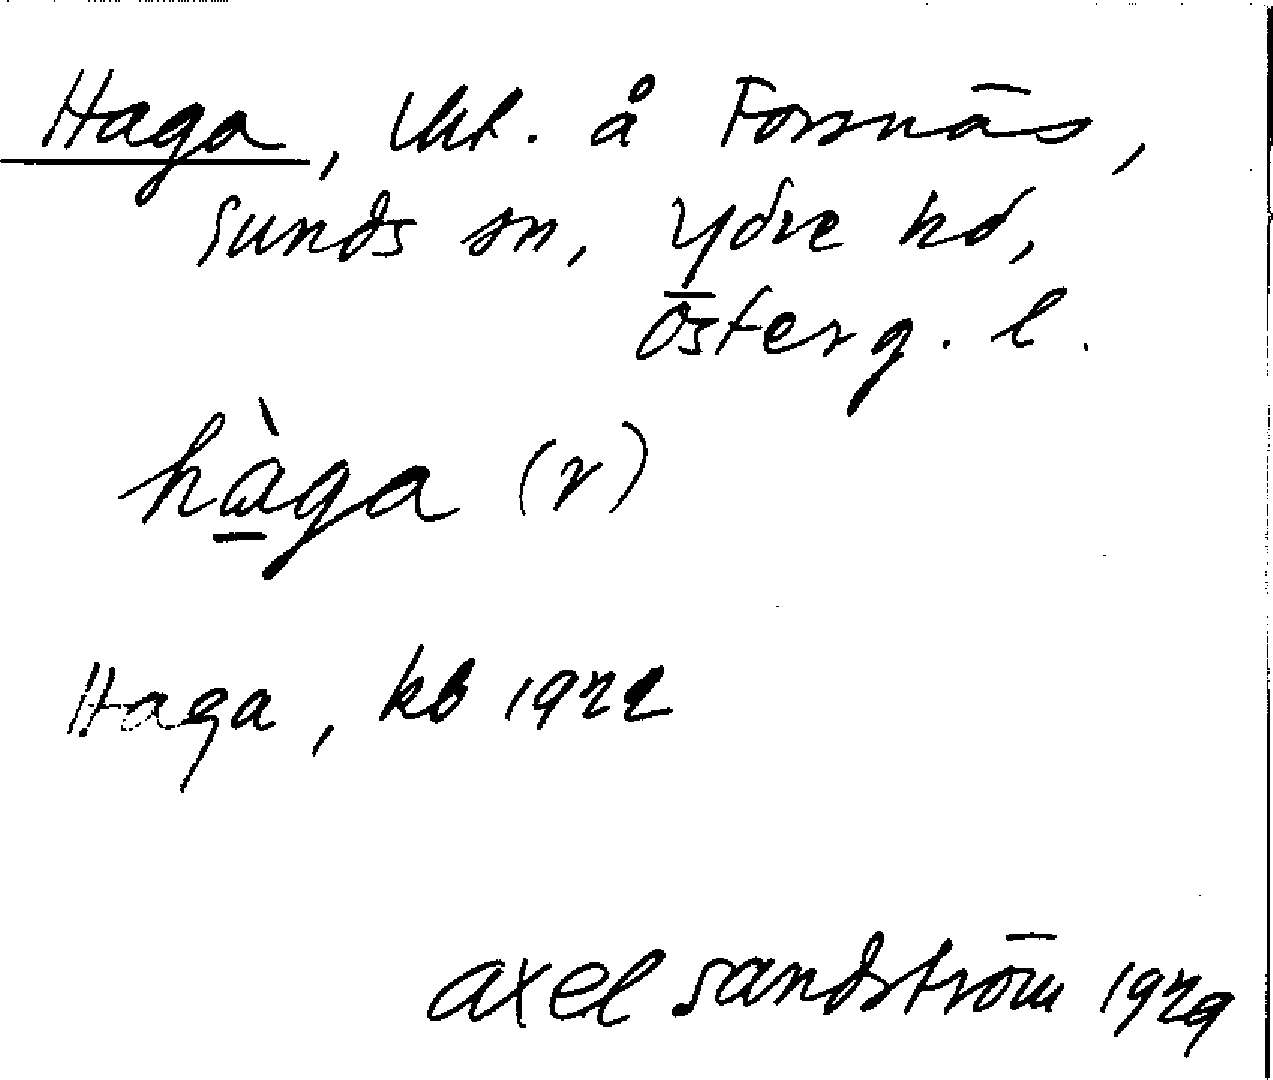 Haga, lht. å Forsnäs,
Sunds sn, Ydre hd,
Österg. l.
hàga (r)
Haga, kb 1922
Axel Sandström 1929